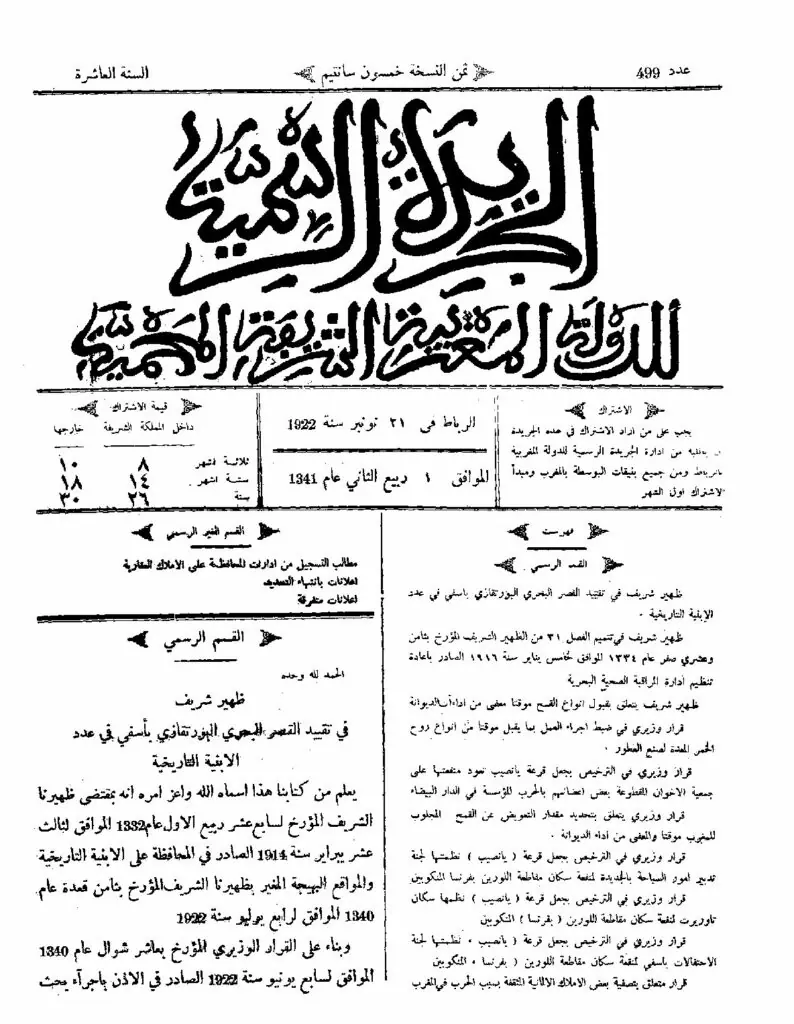 عدد 499
ثمن النسخة خمسون سانتيم
السنة العاشرة
الجريدة الرسمية
للدولة المغربية الشريفة المحمية
الاشتراك
يجب على من اراد الاشتراك في هذه الجريدة
من ادارة الجريدة الرسمية للدولة المغربية
بالرباط ومن جميع بنيقات البوسطة بالمغرب ومبدأ
الاشتراك اول الشهر
الرباط في ٢١ نونبر سنة 1922
الموافق ١ ربيع الثاني عام 1341
قيمة الاشتراك
داخل المملكة الشريفة خارجها
ثلاثة اشهر ٨ ١٠
ستة اشهر ١٤ ١٨
سنة ٢٦ ٣٠
فهرست
القسم الرسمي
ظهير شريف في تقييد القصر البحري البورتقازي باسفي في عدد
الابنية التاريخية .
ظهير شريف في تتميم الفصل ٣١ من الظهير الشريف المؤرخ بثامن
وعشري صفر عام ١٣٣٤ الموافق لخامس يناير سنة ١٩١٦ الصادر باعادة
تنظيم ادارة المراقبة الصحية البحرية
ظهير شريف يتعلق بقبول انواع القمح موقتا معفى من اداءات الديوانة
قرار وزيري في ضبط اجراء العمل بما يقبل موقتا من انواع روح
الخمر المعدة لصنع العطور .
قرار وزيري في الترخيص بجعل قرعة يانصيب تعود منفعتها على
جمعية الاخوان المقطوعة بعض اعضائهم بالحرب المؤسسة في الدار البيضاء
قرار وزيري يتعلق بتحديد مقدار التعويض عن القمح المجلوب
للمغرب موقتا والمعفى من اداء الديوانة .
قرار وزيري في الترخيص بجعل قرعة ( يانصيب ) نظمتها لجنة
تدبير امور السياحة بالجديدة لمنفعة سكان مقاطعة اللورين بفرنسا المنكوبين
قرار وزيري في الترخيص بجعل قرعة ( يانصيب ) نظمها سكان
تاوريرت لمنفعة سكان مقاطعة اللورين ( بفرنسا ) المنكوبين
قرار وزيري في الترخيص بجعل قرعة ( يانصيب ) نظمتها لجنة
الاحتفالات باسفي لمنفعة سكان مقاطعة اللورين ( بفرنسا ) المنكوبين
قرار متعلق بتصفية بعض الاملاك الالمانية المثقفة بسبب الحرب في المغرب
القسم الغير الرسمي
مطالب التسجيل من ادارات المحافظة على الاملاك العقارية
اعلانات بانتهاء التحديد
اعلانات متفرقة
القسم الرسمي
الحمد لله وحده
ظهير شريف
في تقييد القصر البحري البورتقازي بأسفي في عدد
الابنية التاريخية
يعلم من كتابنا هذا اسماه الله واعز امره انه بمقتضى ظهيرنا
الشريف المؤرخ لسابع عشر ربيع الاول عام 1332 الموافق لثالث
عشر يبراير سنة 1914 الصادر في المحافظة على الابنية التاريخية
والمواقع البهيجة المغير بظهيرنا الشريف المؤرخ بثامن قعدة عام
1340 الموافق لرابع يوليو سنة 1922
وبناء على القرار الوزيري المؤرخ بعاشر شوال عام 1340
الموافق لسابع يونيو سنة 1922 الصادر في الاذن باجرآء بحث